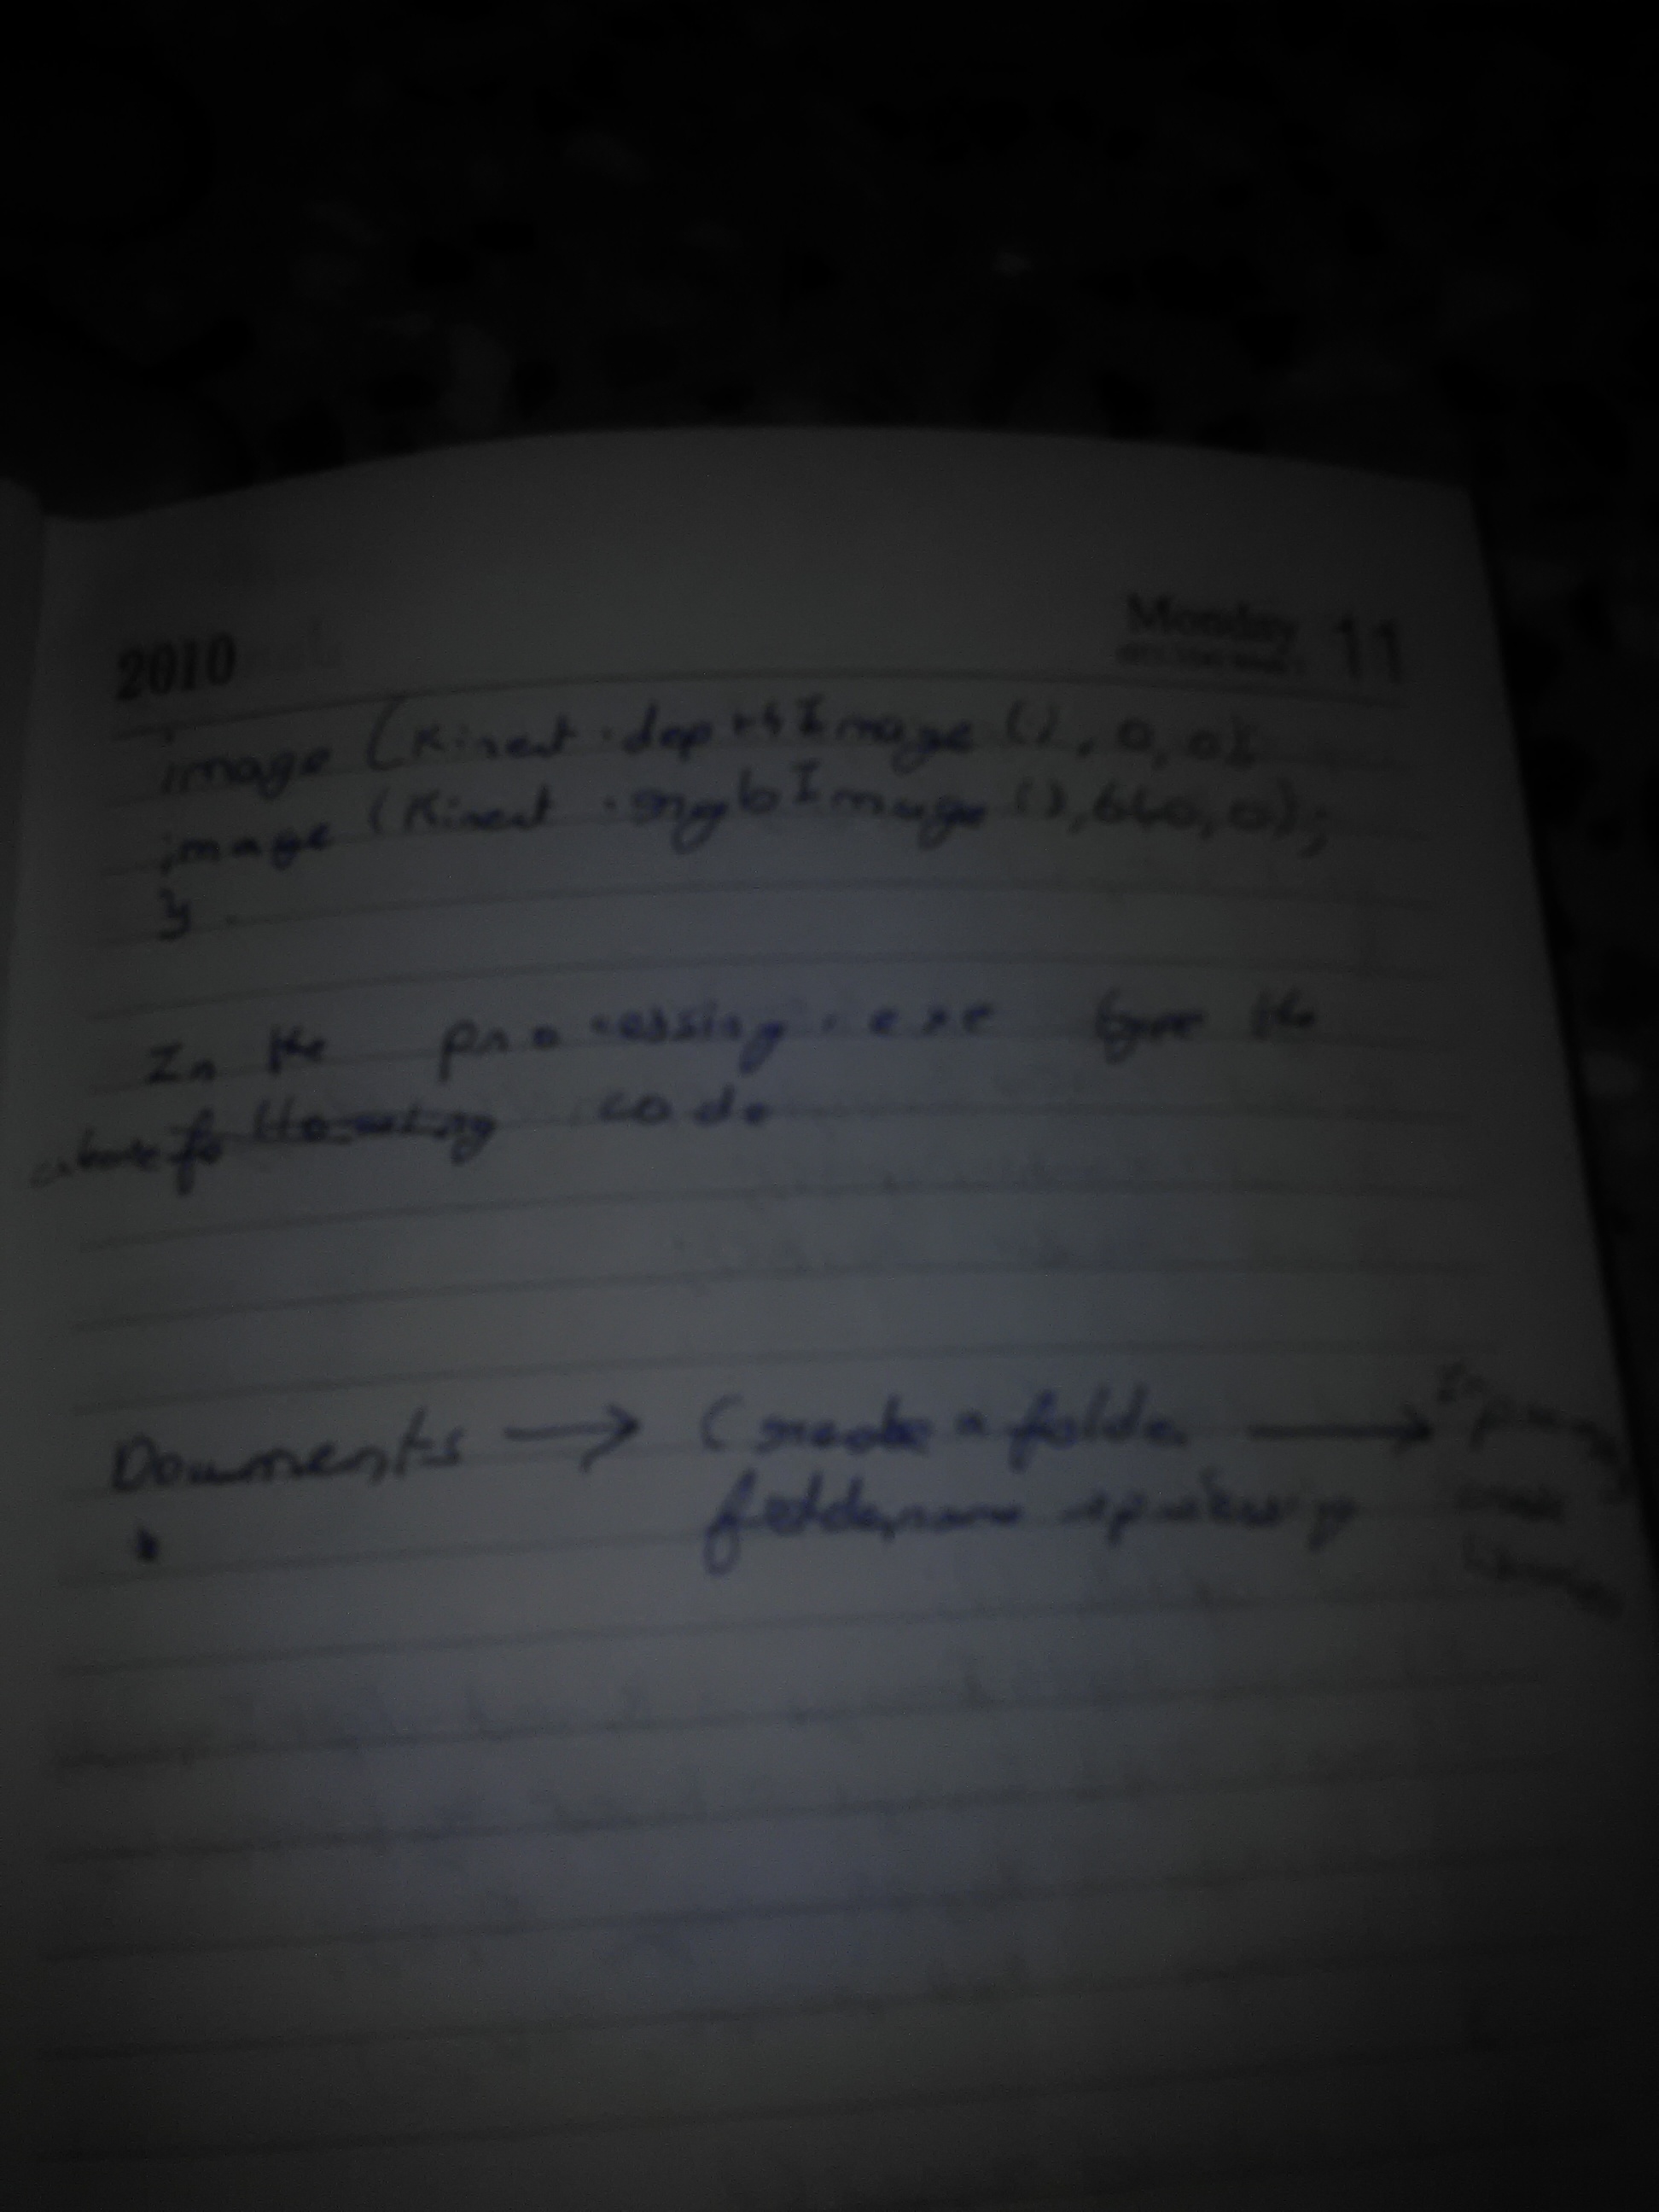 2010 Monday 11
image (Kinect.depthImage (), 0, 0);
image (Kinect.rgbImage (), 640, 0);
}
In the processing.exe type the
above code
Documents → Create a folder →
foldername processing